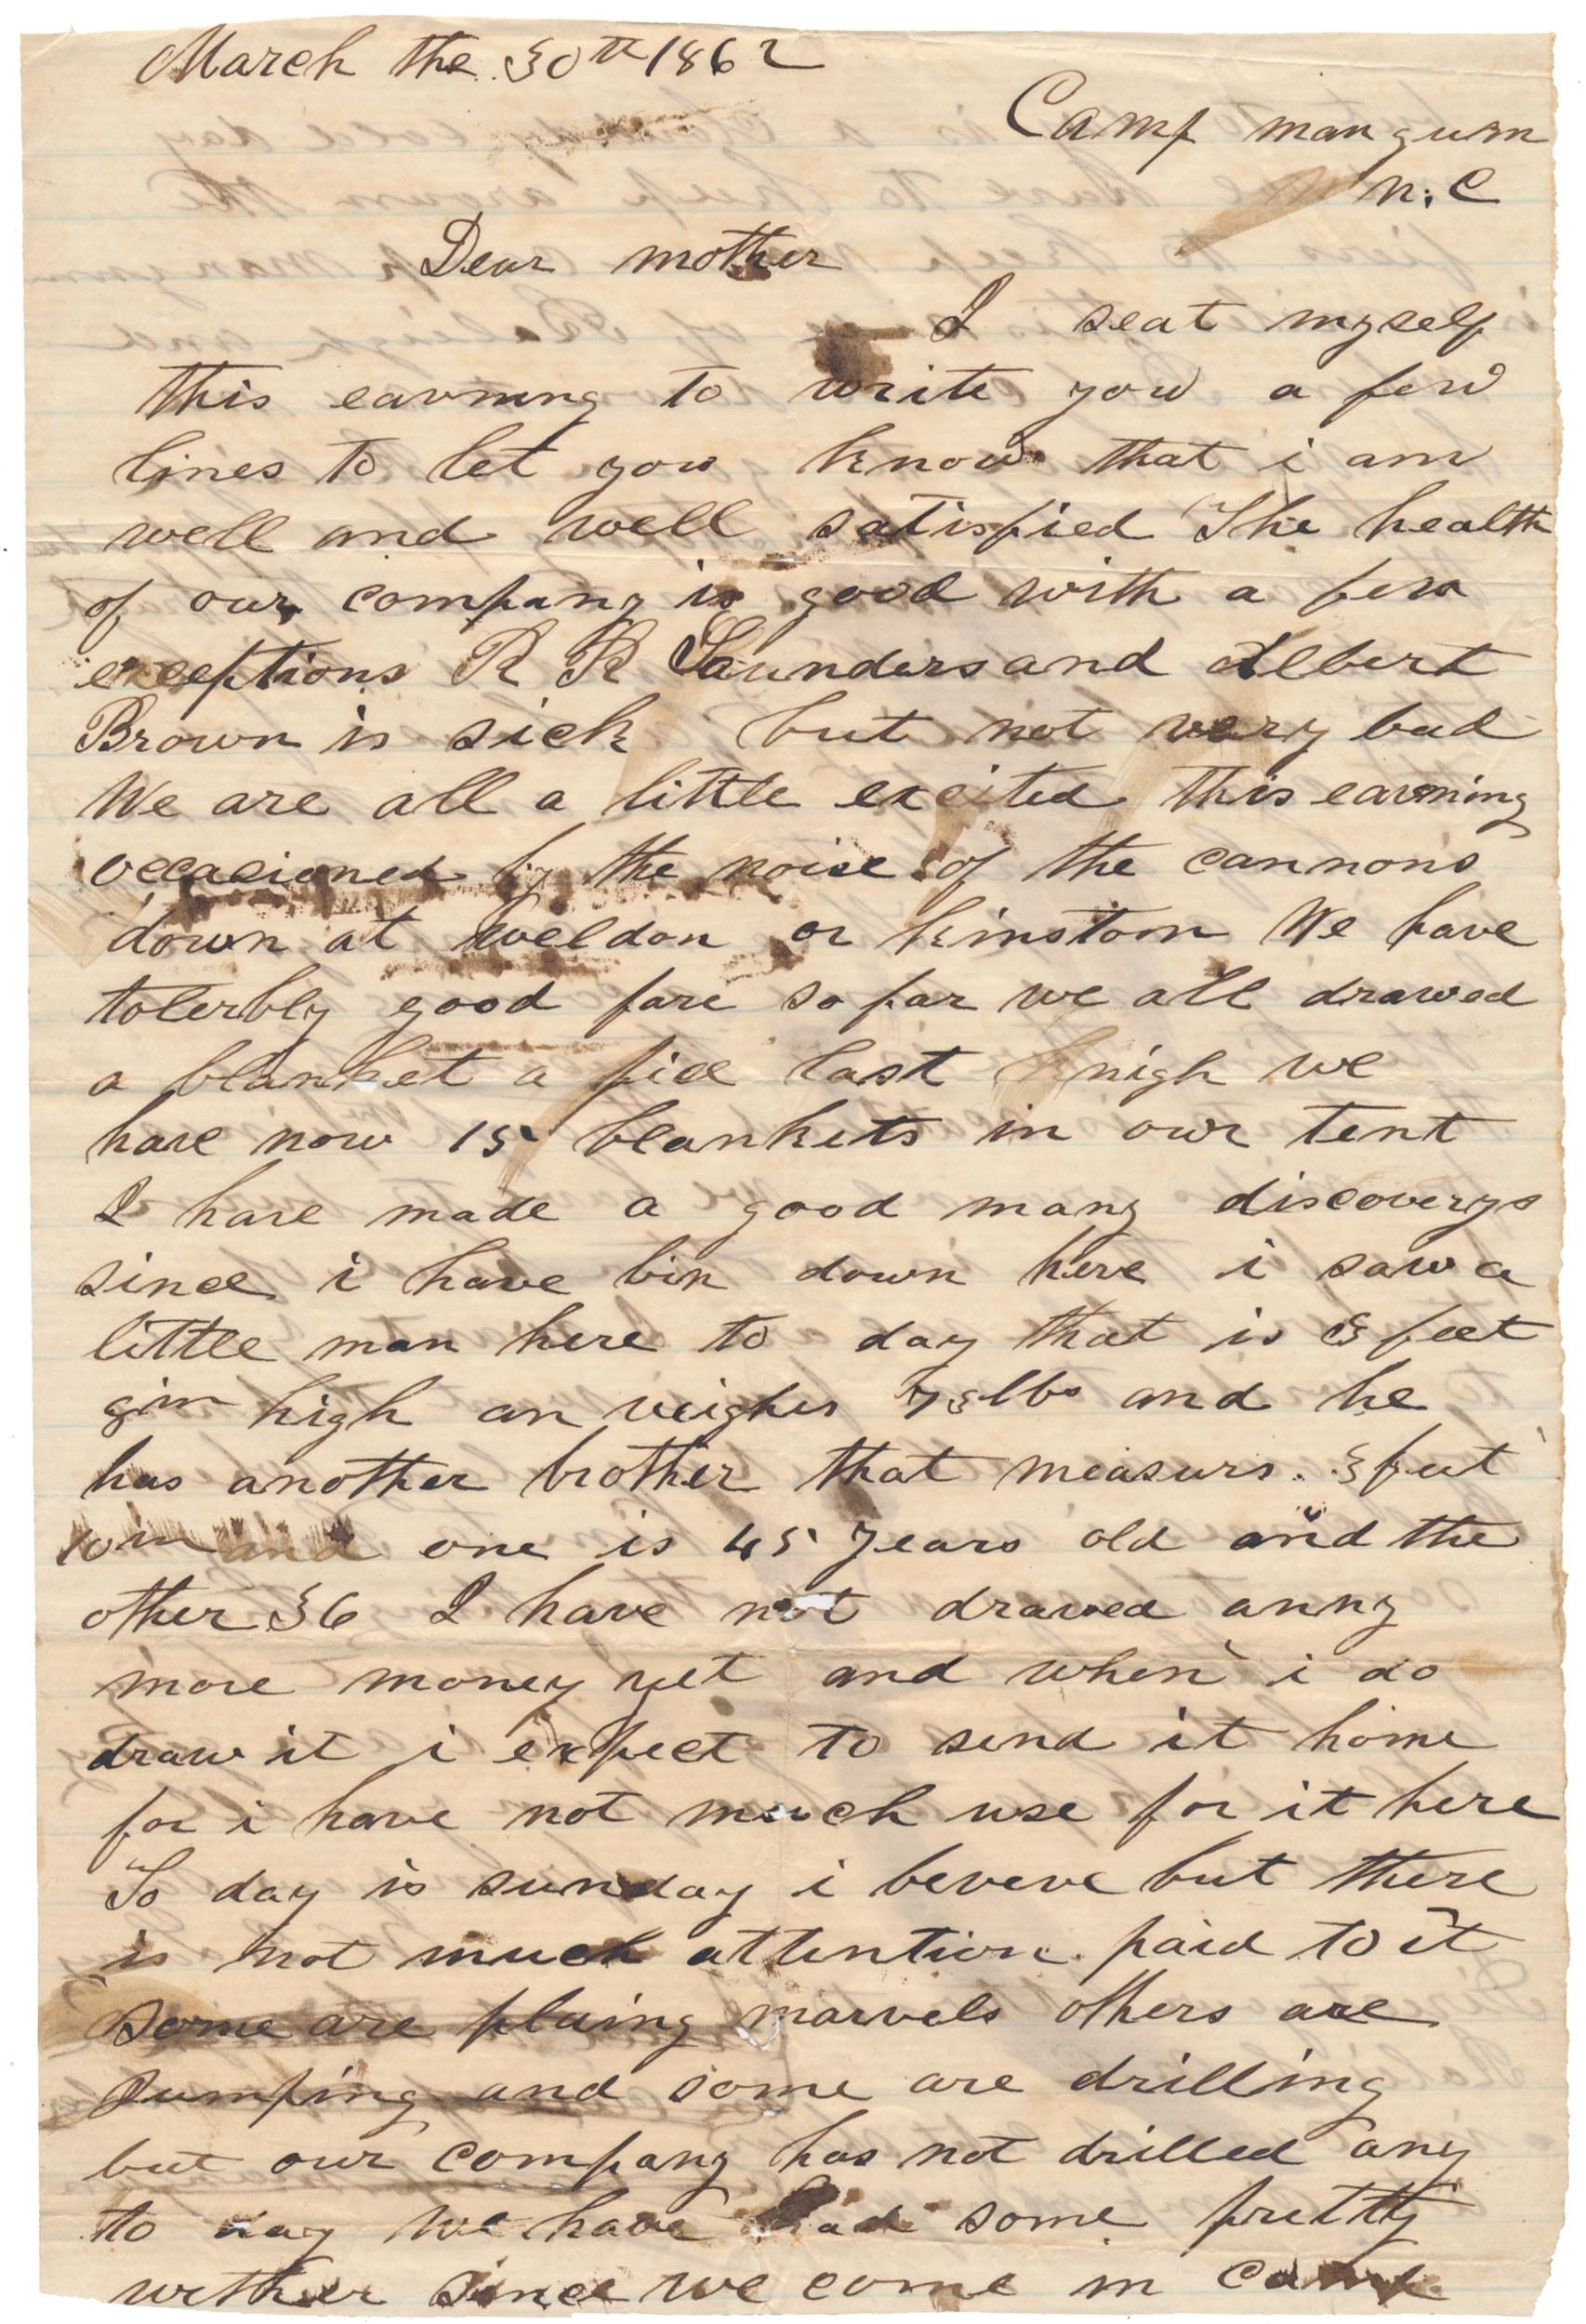 March the 30th 1862
Camp mangum
n.c
Dear mother
I seat myself
this eavning to write you a few
lines to let you know that i am
well and well satisfied The health
of our company is good with a few
exceptions R R Saunders and Albert
Brown is sick but not very bad
We are all a little excited this eavning
occasioned by the noise of the cannons
down at weldon or kinston We have
tolerbly good fare so far we all drawed
a blanket a pice last nigh we
have now 15 blankets in our tent
I have made a good many discoverys
since i have bin down here i saw a
little man here to day that is 3 feet
9in high an weighes 73lbs and he
has another brother that measurs 3 feet
10in and one is 45 years old and the
other 36 I have not drawed anny
more money yet and when i do
draw it i expect to send it home
for i have not much use for it here
To day is sunday i beveve but there
is not much attention paid to it
some are plaing marvels others are
Jumping and some are drilling
but our company has not drilled any
to day we have had some pretty
wether since we come in camp